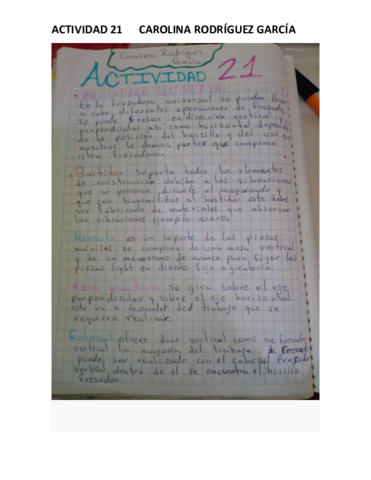 ACTIVIDAD 21 CAROLINA RODRÍGUEZ GARCÍA
Carolina Rodríguez
García
ACTIVIDAD 21
FRESADORA UNIVERSAL
En la fresadora universal se pueden llevar
a cabo diferentes operaciones de fresado
se puede fresar en dirección vertical y
perpendicular así como horizontal
de la posición del husillo y del uso
le demas partes que componen
esta fresadora.
Bastidor soporta todos los elementos
de construcción debido a las vibraciones
que se generan durante el maquinado y
que son transmitidas al bastidor este debe
ser fabricado de materiales que absorvan
las vibraciones ejemplo acero.
Mensula es un soporte de las piezas
moviles se compone de una mesa vertical
y de un mecanismo de avance para fijar las
piezas light en diseño fijo o giratorio.
Mesa giratoria se gira sobre el eje
perpendicular y sobre el eje horizontal
esto va a depender del trabajo que se
requiera realizar.
Cabezal ofrece doer vertical como su fresado
vertical la mayoria del trabajo de fresado
puede ser realizado con el cabezal fresado
vertical dentro de el se encuentra el husillo
fresador.